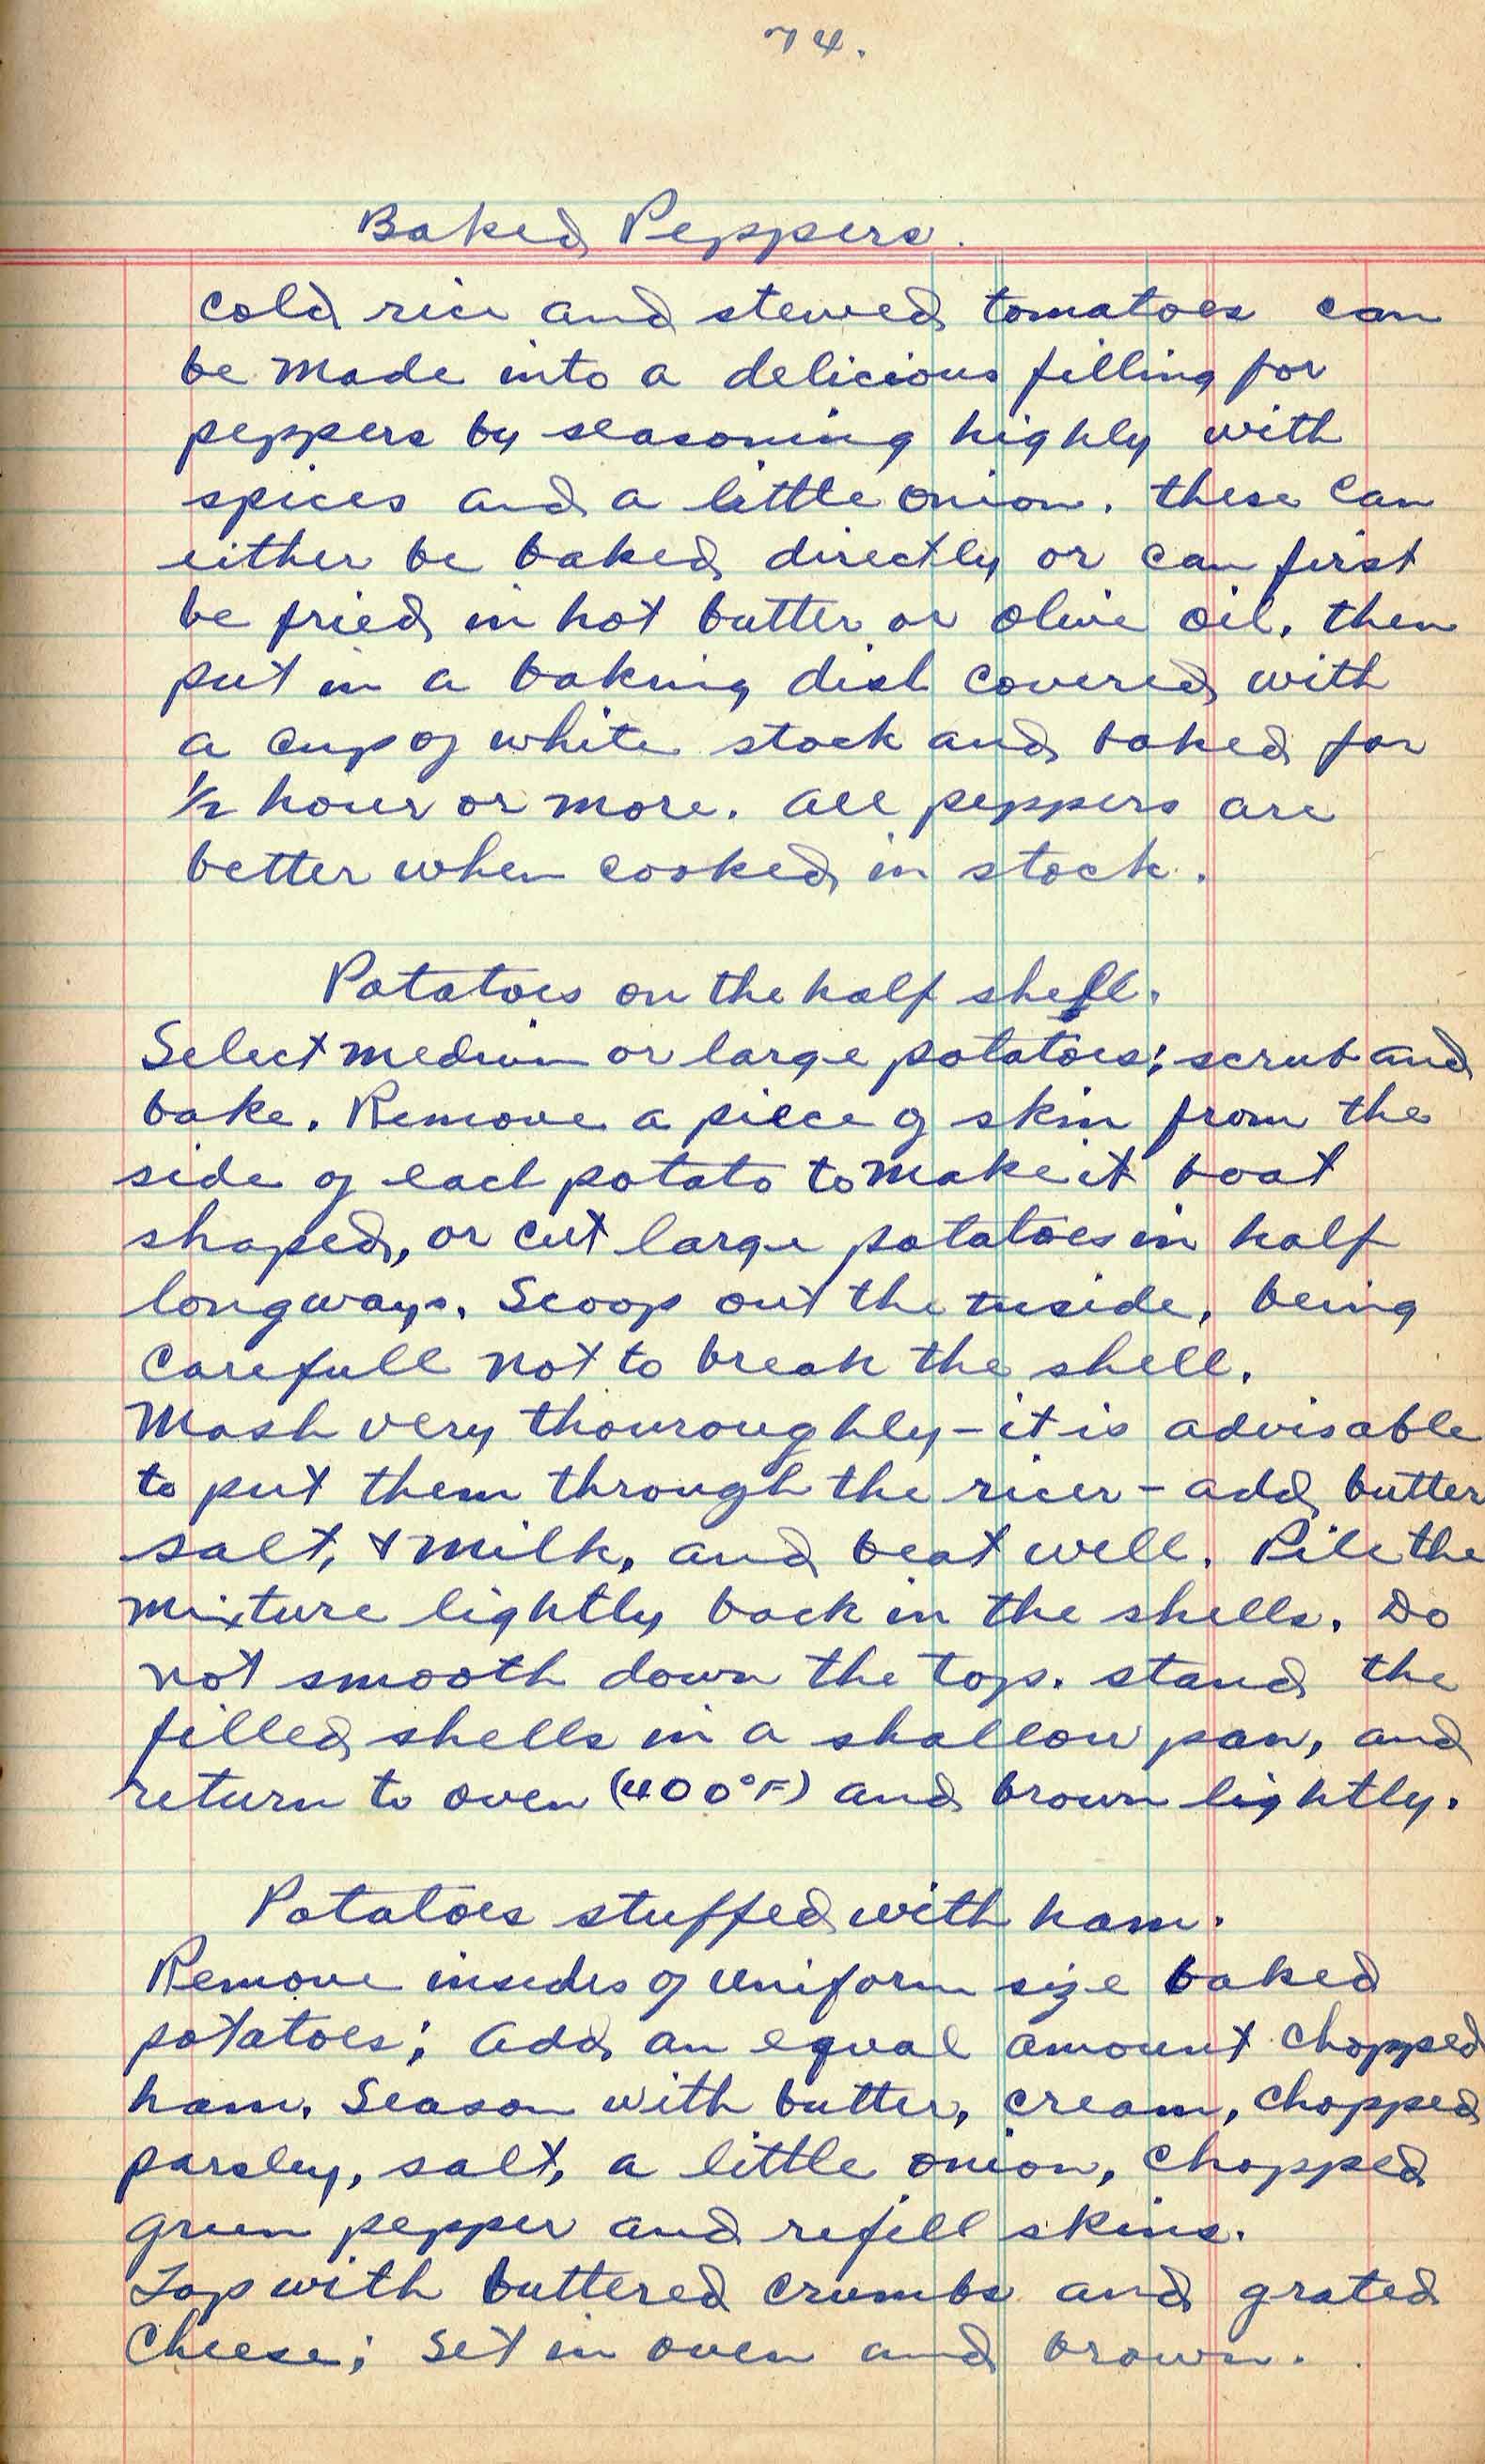 74.
Baked Peppers.
cold rice and stewed tomatoes can
be made into a delicious filling for
peppers by seasoning highly with
spices and a little onion. these can
either be baked directly or can first
be fried in hot butter or olive oil, then
put in a baking dish covered with
a cup of white stock and baked for
1/2 hour or more. all peppers are
better when cooked in stock.
Potatoes on the half shell.
Select medium or large potatoes; scrub and
bake. Remove a piece of skin from the
side of each potato to make it boat
shaped, or cut large potatoes in half
longways. Scoop out the inside, being
carefull not to break the shell.
Mash very thouroughly - it is advisable
to put them through the ricer - add butter
salt, & milk, and beat well. Pile the
mixture lightly back in the shells. Do
not smooth down the top. stand the
filled shells in a shallow pan, and
return to oven (400°F) and brown lightly.
Potatoes stuffed with ham.
Remove insides of uniform size baked
potatoes; add an equal amount chopped
ham. Season with butter, cream, chopped
parsley, salt, a little onion, chopped
green pepper and refill skins.
Top with buttered crumbs and grated
cheese; set in oven and brown.